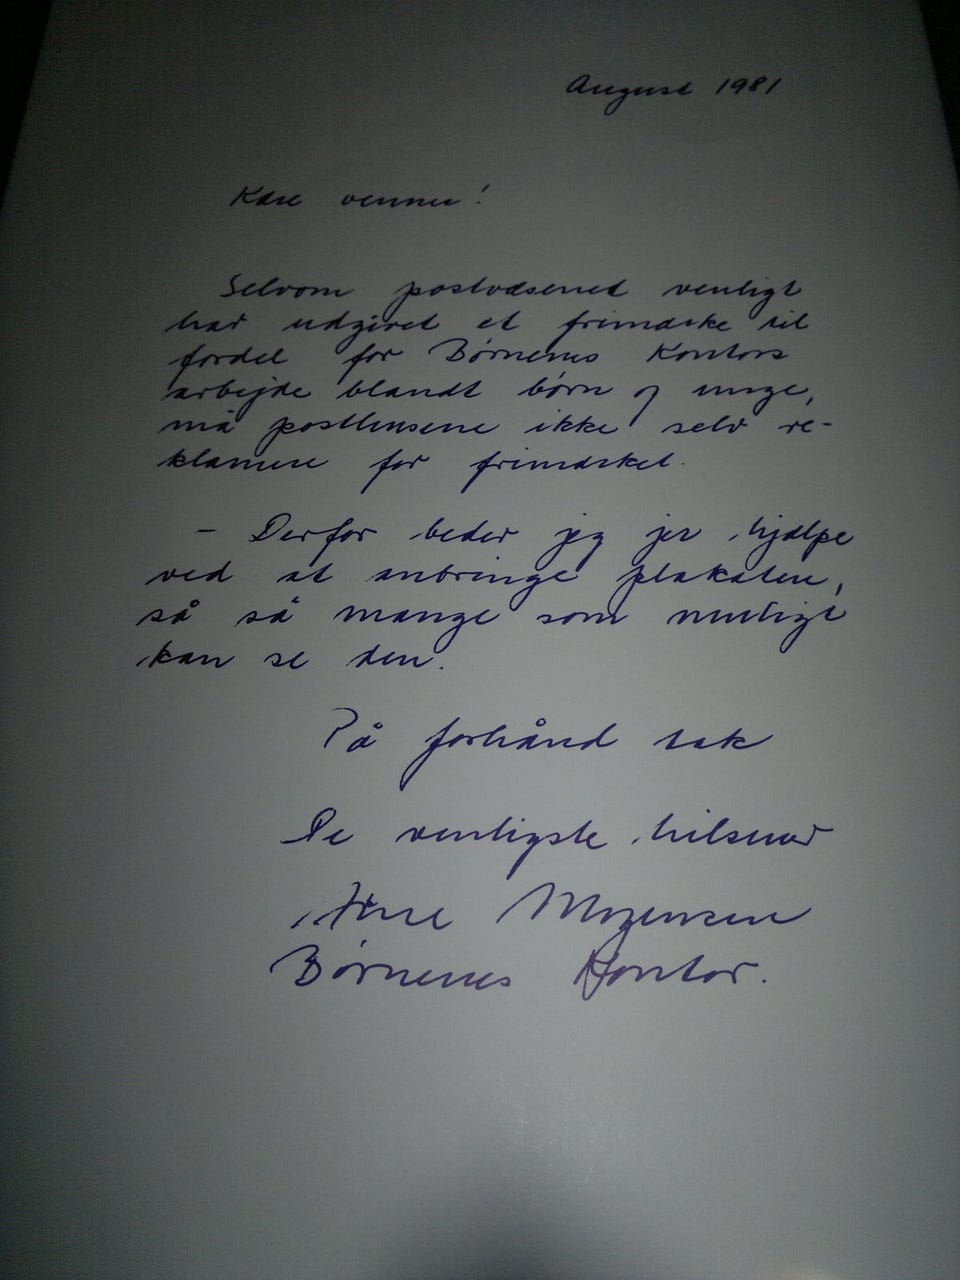 August 1981
Kære venner!
Selvom postvæsenet venligt
har udgivet et frimærke til
fordel for Børnenes Kontors
arbejde blandt børn og unge,
må posthusene ikke selv re-
klamere for frimærket.
- Derfor beder jeg jer hjælpe
ved at anbringe plakaten,
så så mange som muligt
kan se den.
På forhånd tak
De venligste hilsner
Mogensen
Børnenes Kontor.